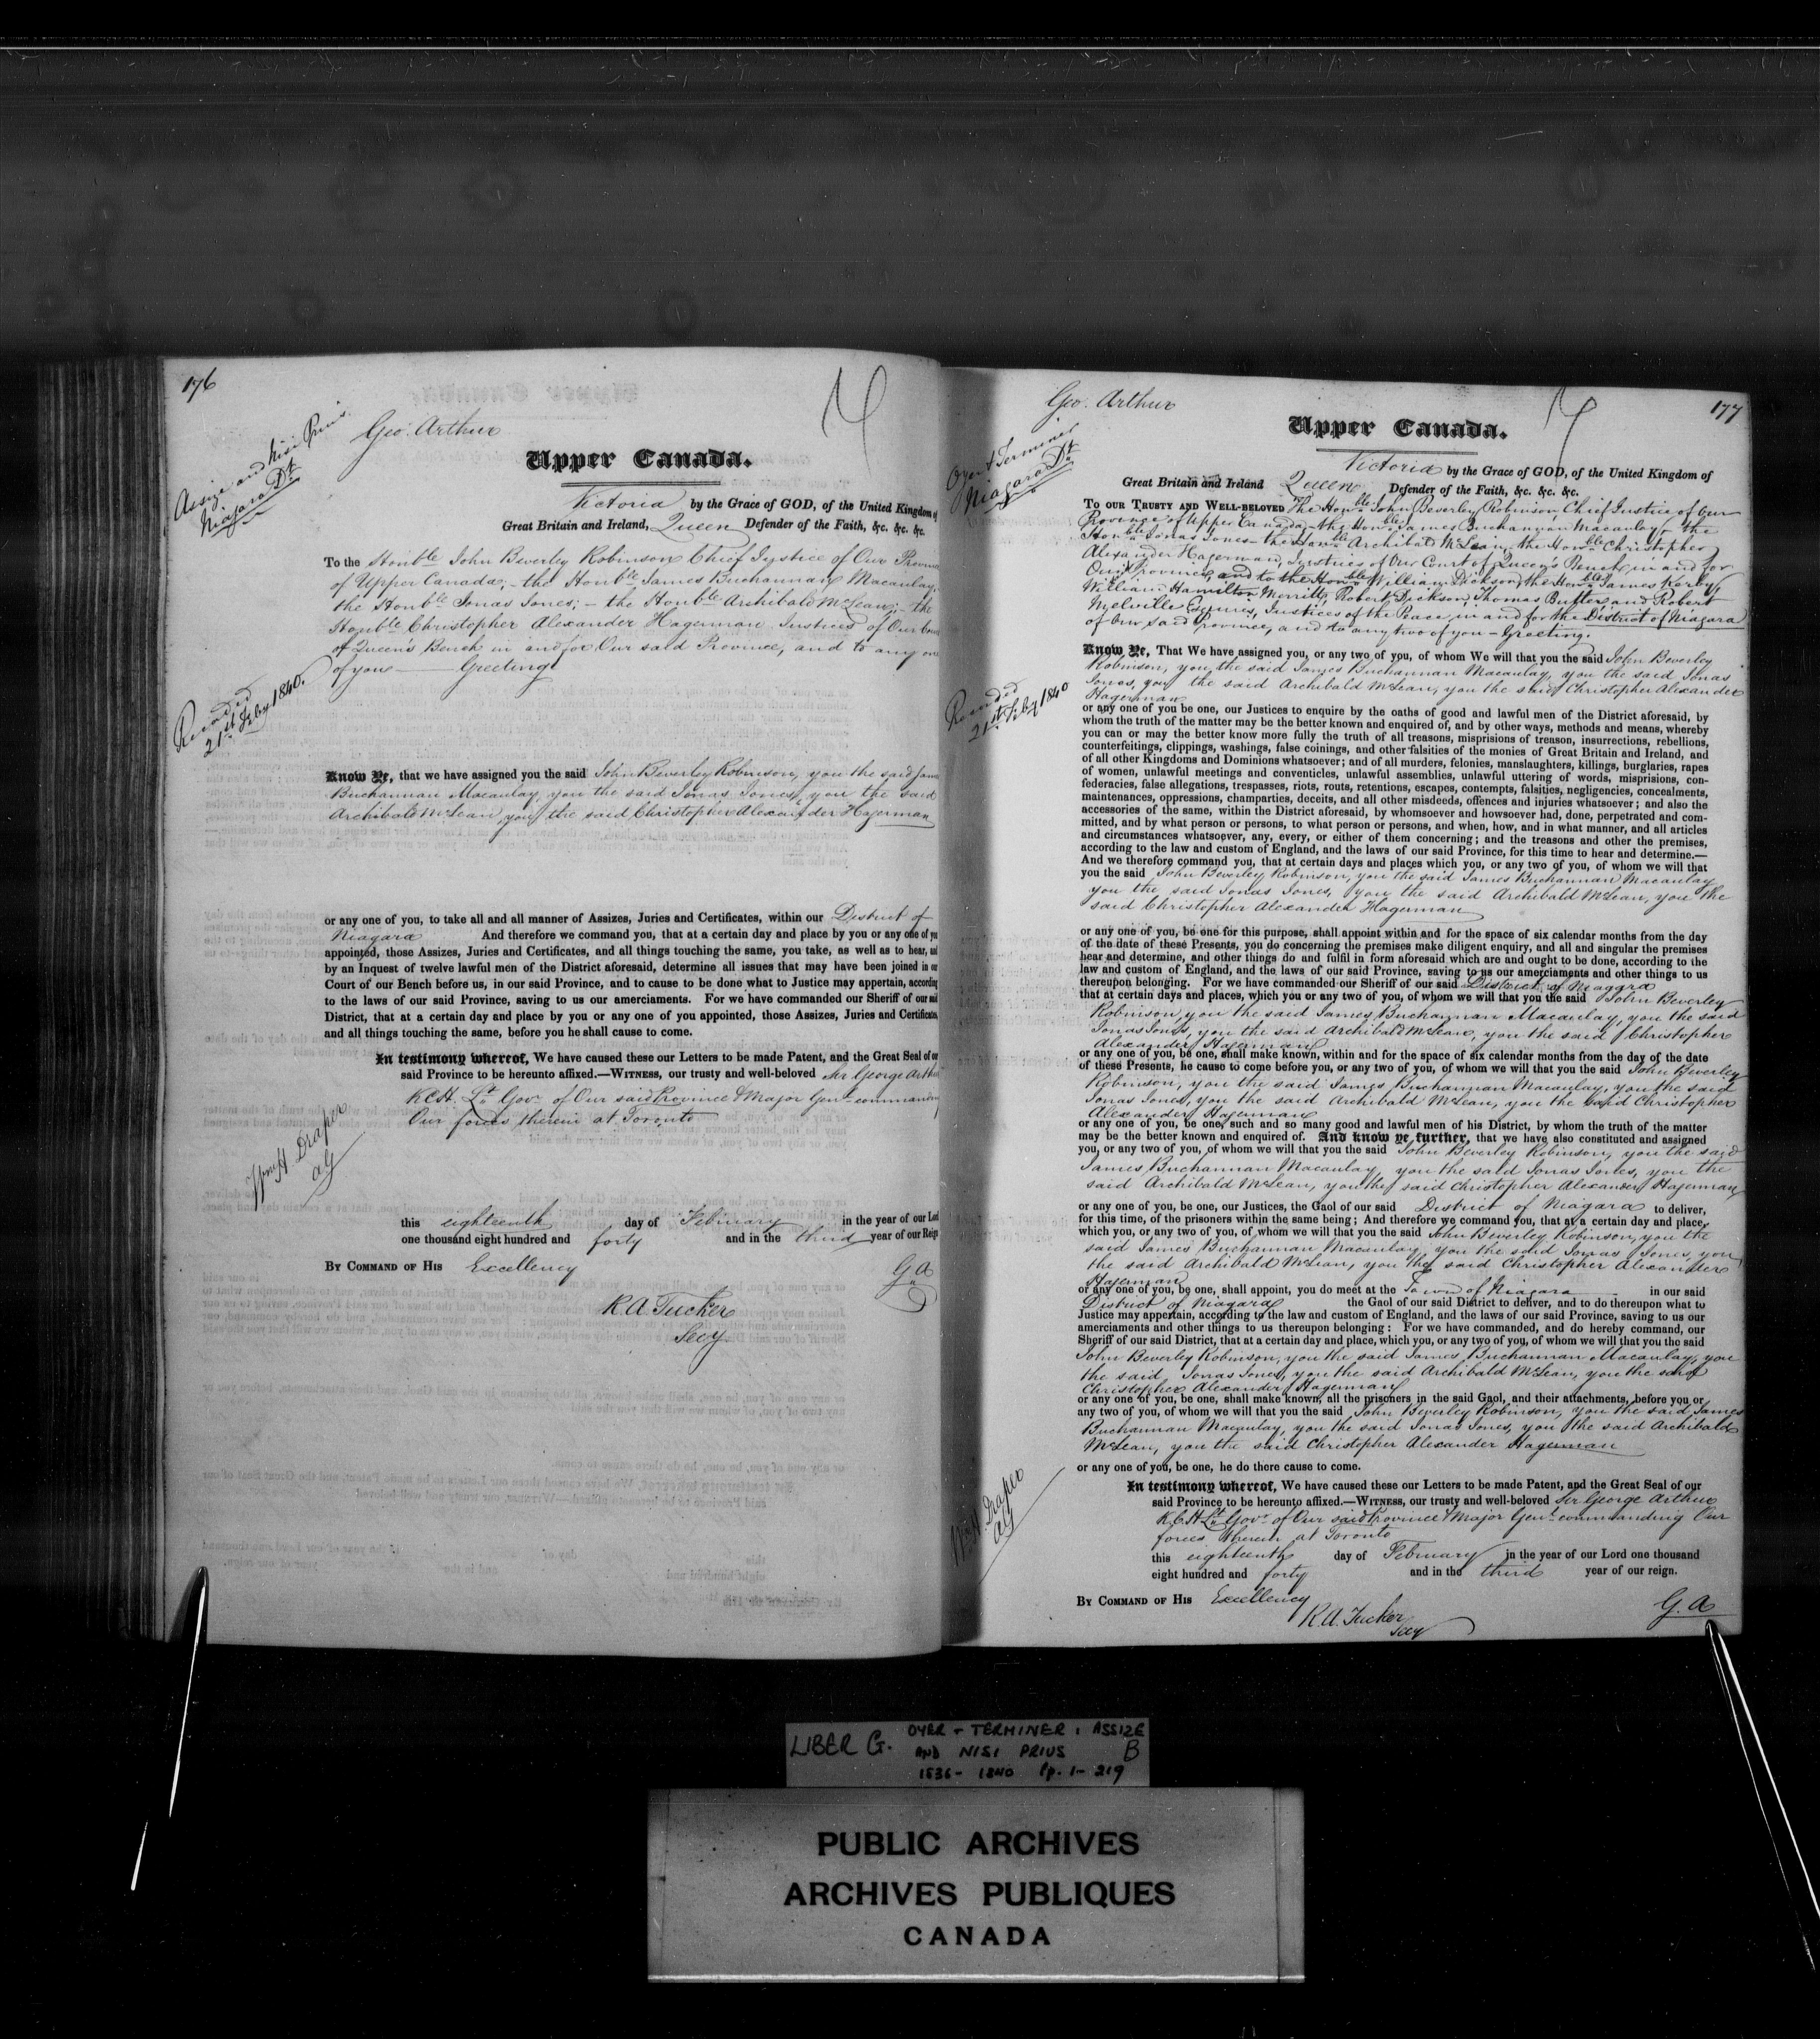 176
Geo. Arthur
Assize and Nisi Prius
Niagara Dt
Upper Canada.
Victoria by the Grace of GOD, of the United Kingdom of
Great Britain and Ireland, Queen Defender of the Faith, &c. &c. &c.
To the Honble John Beverley Robinson Chief Justice of Our Province
of Upper Canada; – the Honble James Buchannan Macaulay;
the Honble Jonas Jones; – the Honble Archibald McLean; – the
Honble Christopher Alexander Hagerman Justices of Our Court
of Queen's Bench in and for Our said Province, and to any one
of you — Greeting
Recorded
21st Feby 1840.
Know Ye, that we have assigned you the said John Beverley Robinson, you the said James
Buchannan Macaulay, you the said Jonas Jones, you the said
Archibald McLean you the said Christopher Alexander Hagerman
or any one of you, to take all and all manner of Assizes, Juries and Certificates, within our District of
Niagara And therefore we command you, that at a certain day and place by you or any one of you
appointed, those Assizes, Juries and Certificates, and all things touching the same, you take, as well as to hear, and
by an Inquest of twelve lawful men of the District aforesaid, determine all issues that may have been joined in our
Court of our Bench before us, in our said Province, and to cause to be done what to Justice may appertain, according
to the laws of our said Province, saving to us our amerciaments. For we have commanded our Sheriff of our said
District, that at a certain day and place by you or any one of you appointed, those Assizes, Juries and Certificates,
and all things touching the same, before you he shall cause to come.
In testimony whereof, We have caused these our Letters to be made Patent, and the Great Seal of our
said Province to be hereunto affixed.—WITNESS, our trusty and well-beloved Sir George Arthur
KCH. Lt Govr of Our said Province & Major Genl commanding
Our forces therein at Toronto
Wm H Draper
AG
this eighteenth day of February in the year of our Lord
one thousand eight hundred and forty and in the third year of our Reign
BY COMMAND OF HIS Excellency
G A
R A Tucker
Secy
177
Geo. Arthur
Oyer & Terminer
Niagara Dt
Upper Canada.
Victoria by the Grace of GOD, of the United Kingdom of
Great Britain and Ireland Queen Defender of the Faith, &c. &c. &c.
TO OUR TRUSTY AND WELL-BELOVED The Honble John Beverley Robinson Chief Justice of Our
Province of Upper Canada – the Honble James Buchannan Macaulay – the
Honble Jonas Jones – the Honble Archibald McLean – the Honble Christopher
Alexander Hagerman, Justices of Our Court of Queen's Bench in and for
Our Province, and to the Honble William Dickson, the Honble James Kerby,
William Hamilton Merritt, Robert Dickson, Thomas Butler and Robert
Melville Esquires, Justices of the Peace in and for the District of Niagara
of Our said Province, and to any two of you – Greeting.
Recorded
21st Feby 1840
Know Ye, That We have assigned you, or any two of you, of whom We will that you the said John Beverley
Robinson, you the said James Buchannan Macaulay, you the said Jonas
Jones, you the said Archibald McLean, you the said Christopher Alexander
Hagerman
or any one of you be one, our Justices to enquire by the oaths of good and lawful men of the District aforesaid, by
whom the truth of the matter may be the better known and enquired of, and by other ways, methods and means, whereby
you can or may the better know more fully the truth of all treasons, misprisions of treason, insurrections, rebellions,
counterfeitings, clippings, washings, false coinings, and other falsities of the monies of Great Britain and Ireland, and
of all other Kingdoms and Dominions whatsoever; and of all murders, felonies, manslaughters, killings, burglaries, rapes
of women, unlawful meetings and conventicles, unlawful assemblies, unlawful uttering of words, misprisions, con-
federacies, false allegations, trespasses, riots, routs, retentions, escapes, contempts, falsities, negligencies, concealments,
maintenances, oppressions, champarties, deceits, and all other misdeeds, offences and injuries whatsoever; and also the
accessories of the same, within the District aforesaid, by whomsoever and howsoever had, done, perpetrated and com-
mitted, and by what person or persons, to what person or persons, and when, how, and in what manner, and all articles
and circumstances whatsoever, any, every, or either of them concerning; and the treasons and other the premises,
according to the law and custom of England, and the laws of our said Province, for this time to hear and determine.—
And we therefore command you, that at certain days and places which you, or any two of you, of whom we will that
you the said John Beverley Robinson, you the said James Buchannan Macaulay
you the said Jonas Jones, you the said Archibald McLean, you the
said Christopher Alexander Hagerman
or any one of you, be one for this purpose, shall appoint within and for the space of six calendar months from the day
of the date of these Presents, you do concerning the premises make diligent enquiry, and all and singular the premises
hear and determine, and other things do and fulfil in form aforesaid which are and ought to be done, according to the
law and custom of England, and the laws of our said Province, saving to us our amerciaments and other things to us
thereupon belonging. For we have commanded our Sheriff of our said District of Niagara
that at certain days and places, which you or any two of you, of whom we will that you the said John Beverley
Robinson, you the said James Buchannan Macaulay, you the said
Jonas Jones, you the said Archibald McLean, you the said Christopher
Alexander Hagerman
or any one of you, be one, shall make known, within and for the space of six calendar months from the day of the date
of these Presents, he cause to come before you, or any two of you, of whom we will that you the said John Beverley
Robinson, you the said James Buchannan Macaulay, you the said
Jonas Jones, you the said Archibald McLean, you the said Christopher
Alexander Hagerman
or any one of you, be one, such and so many good and lawful men of his District, by whom the truth of the matter
may be the better known and enquired of. And know ye further, that we have also constituted and assigned
you, or any two of you, of whom we will that you the said John Beverley Robinson, you the said
James Buchannan Macaulay, you the said Jonas Jones, you the
said Archibald McLean, you the said Christopher Alexander Hagerman
or any one of you, be one, our Justices, the Gaol of our said District of Niagara to deliver,
for this time, of the prisoners within the same being; And therefore we command you, that at a certain day and place,
which you, or any two of you, of whom we will that you the said John Beverley Robinson, you the
said James Buchannan Macaulay, you the said Jonas Jones, you
the said Archibald McLean, you the said Christopher Alexander
Hagerman
or any one of you, be one, shall appoint, you do meet at the Town of Niagara in our said
District of Niagara the Gaol of our said District to deliver, and to do thereupon what to
Justice may appertain, according to the law and custom of England, and the laws of our said Province, saving to us our
amerciaments and other things to us thereupon belonging: For we have commanded, and do hereby command, our
Sheriff of our said District, that at a certain day and place, which you, or any two of you, of whom we will that you the said
John Beverley Robinson, you the said James Buchannan Macaulay, you
the said Jonas Jones, you the said Archibald McLean, you the said
Christopher Alexander Hagerman
or any one of you, be one, shall make known, all the prisoners in the said Gaol, and their attachments, before you or
any two of you, of whom we will that you the said John Beverley Robinson, you the said James
Buchannan Macaulay, you the said Jonas Jones, you the said Archibald
McLean, you the said Christopher Alexander Hagerman
or any one of you, be one, he do there cause to come.
In testimony whereof, We have caused these our Letters to be made Patent, and the Great Seal of our
said Province to be hereunto affixed.—WITNESS, our trusty and well-beloved Sir George Arthur
K.C.H Lt Govr of Our said Province & Major Genl commanding Our
forces therein at Toronto
Wm H. Draper
AG
this eighteenth day of February in the year of our Lord one thousand
eight hundred and forty and in the third year of our reign.
BY COMMAND OF HIS Excellency
R. A. Tucker
Secy
G. A
LIBER G. OYER + TERMINER; ASSIZE
AND NISI PRIUS B
1836- 1840 Pp. 1- 219
PUBLIC ARCHIVES
ARCHIVES PUBLIQUES
CANADA